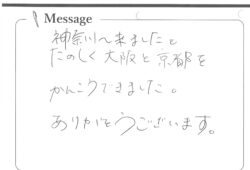 Message
神奈川へ来ましたと
たのしく大阪と京都を
かんこうできました。
ありがとうございます。